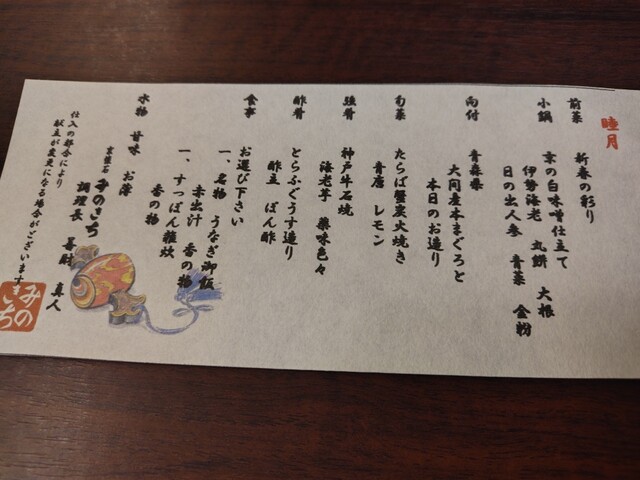 睦月
前菜 新春の彩り
小鍋 京の白味噌仕立て
伊勢海老 丸餅 大根
日の出人参 青菜 金粉
向付 青森県
大間産本まぐろと
本日のお造り
旬菜 たらば蟹炭火焼き
青唐 レモン
強肴 神戸牛石焼
海老芋 薬味色々
酢肴 とらふぐうす造り
酢立 ぽん酢
食事 お選び下さい
一、名物 うなぎ御飯
赤出汁 香の物
一、すっぽん雑炊
香の物
水物 甘味 お薄
京懐石 みのきち
調理長 真人
仕入の都合により
献立が変更になる場合がございます
みの
きち